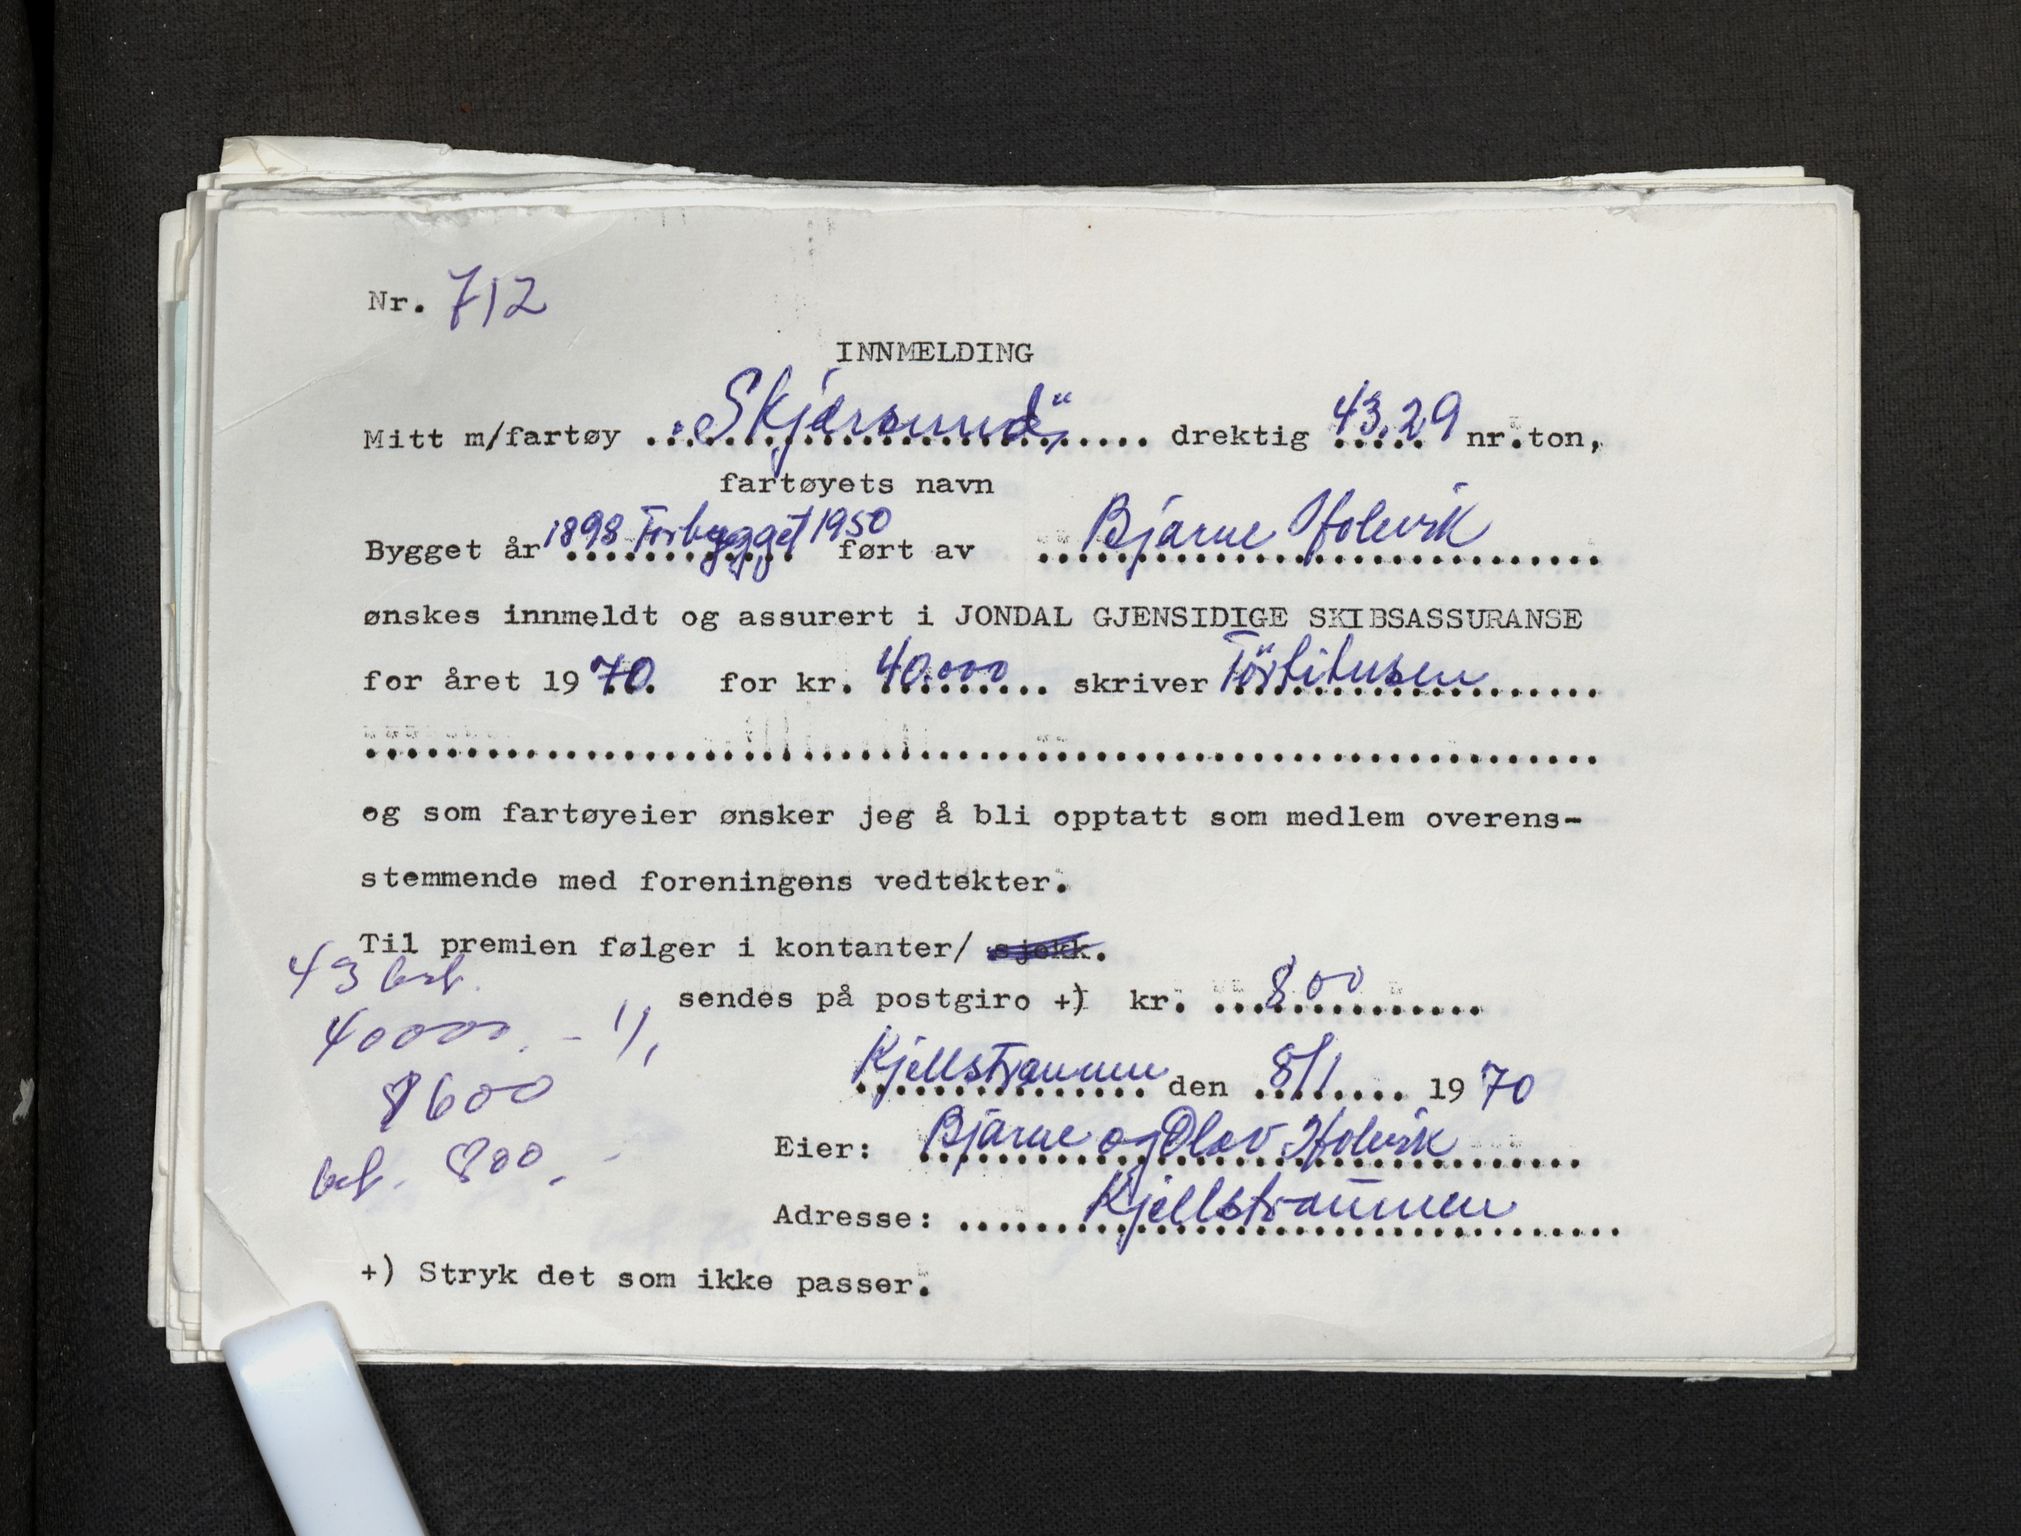 Nr. 712
INNMELDING
Mitt m/fartøy "Skjærsund" drektig 43.29 nr.ton,
fartøyets navn
Bygget år 1898 Forbygget 1950 ført av Bjarne Holevik
ønskes innmeldt og assurert i JONDAL GJENSIDIGE SKIBSASSURANSE
for året 1970. for kr. 40.000 skriver Förtitusen
og som fartøyeier ønsker jeg å bli opptatt som medlem overens-
stemmende med foreningens vedtekter.
Til premien følger i kontanter/ sjekk.
43 brt.
sendes på postgiro +) kr. 800
40000.- 1/1
Kjellstraumen den 8/1 1970
8600
Eier: Bjarne og Olav Holevik
bet. 800.-
Adresse: Kjellstraumen
+) Stryk det som ikke passer.